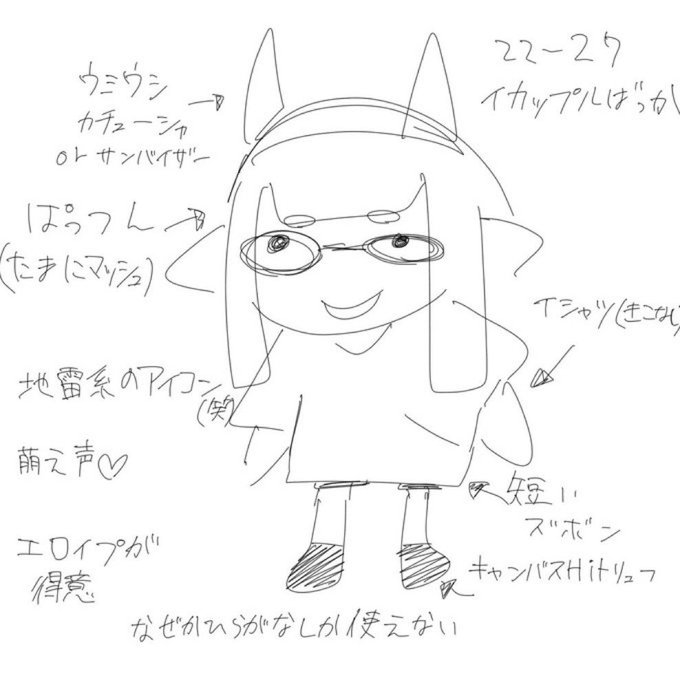 ウミウシ
カチューシャ
or サンバイザー
22〜27
イカップルばっか
ぱっつん
(たまにマッシュ)
Tシャツ(きこなし)
地雷系のアイコン
(笑)
萌え声♡
短い
ズボン
エロイプが
得意
キャンバスHiトリュフ
なぜかひらがなしか使えない